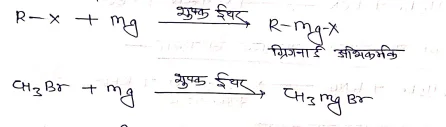 R-X + Mg शुष्क ईथर → R-Mg-X
ग्रिगनार्ड अभिकर्मक
CH3Br + Mg शुष्क ईथर → CH3MgBr